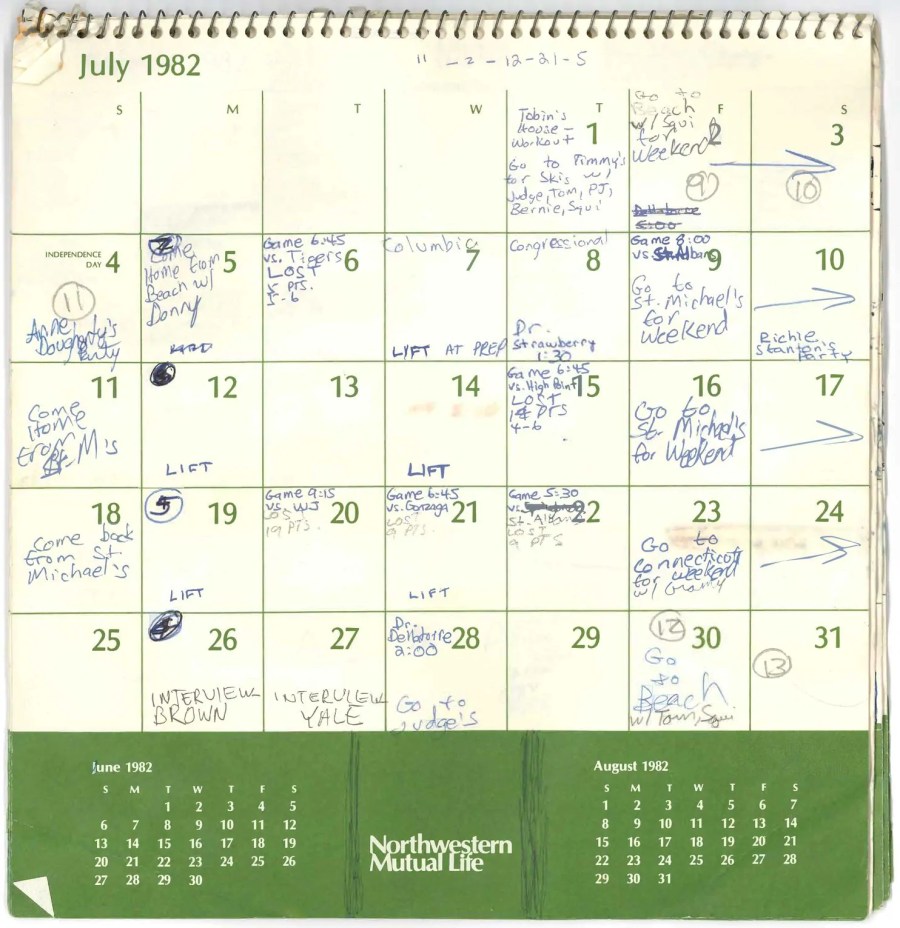 July 1982
" - 2 - 12-21-5
S M T W T F S
Tobin's
House –
Workout
1
Go to Timmy's
for Skis w/
Judge, Tom, PJ,
Bernie, Squi
Go to
Beach
w/ Squi
for
Weekend
2
9
3
10
INDEPENDENCE
DAY 4
11
Anne
Dougherty's
Party
5
Come
Home from
Beach w/
Donny
Game 6:45
vs. Tigers
LOST
5 pts.
5-6
6
Columbia
7
LIFT AT PREP
Congressional
8
Dr.
Strawberry
1:30
Game 8:00
vs. St. Albans
9
Go to
St. Michael's
for
Weekend
10
Richie
Stanton's
Party
11
Come
Home
from
St. M's
12
LIFT
13
14
LIFT
Game 6:45
vs. High Point
LOST
14 PTS
4-6
15
16
Go to
St. Michael's
for Weekend
17
18
Come back
from St.
Michael's
5
19
LIFT
Game 9:15
vs. WJ
LOST
19 PTS.
20
Game 6:45
vs. Gonzaga
LOST
9 PTS.
21
LIFT
Game 5:30
vs.
St. Albans
LOST
9 PTS
22
23
Go to
Connecticut
for weekend
w/ Grammy
24
25
26
INTERVIEW
BROWN
27
INTERVIEW
YALE
Dr.
2:00
28
Go to
Judge's
29
12
30
Go
to
Beach
w/ Tom, Squi
31
13
June 1982
S M T W T F S
1 2 3 4 5
6 7 8 9 10 11 12
13 14 15 16 17 18 19
20 21 22 23 24 25 26
27 28 29 30
Northwestern
Mutual Life
August 1982
S M T W T F S
1 2 3 4 5 6 7
8 9 10 11 12 13 14
15 16 17 18 19 20 21
22 23 24 25 26 27 28
29 30 31